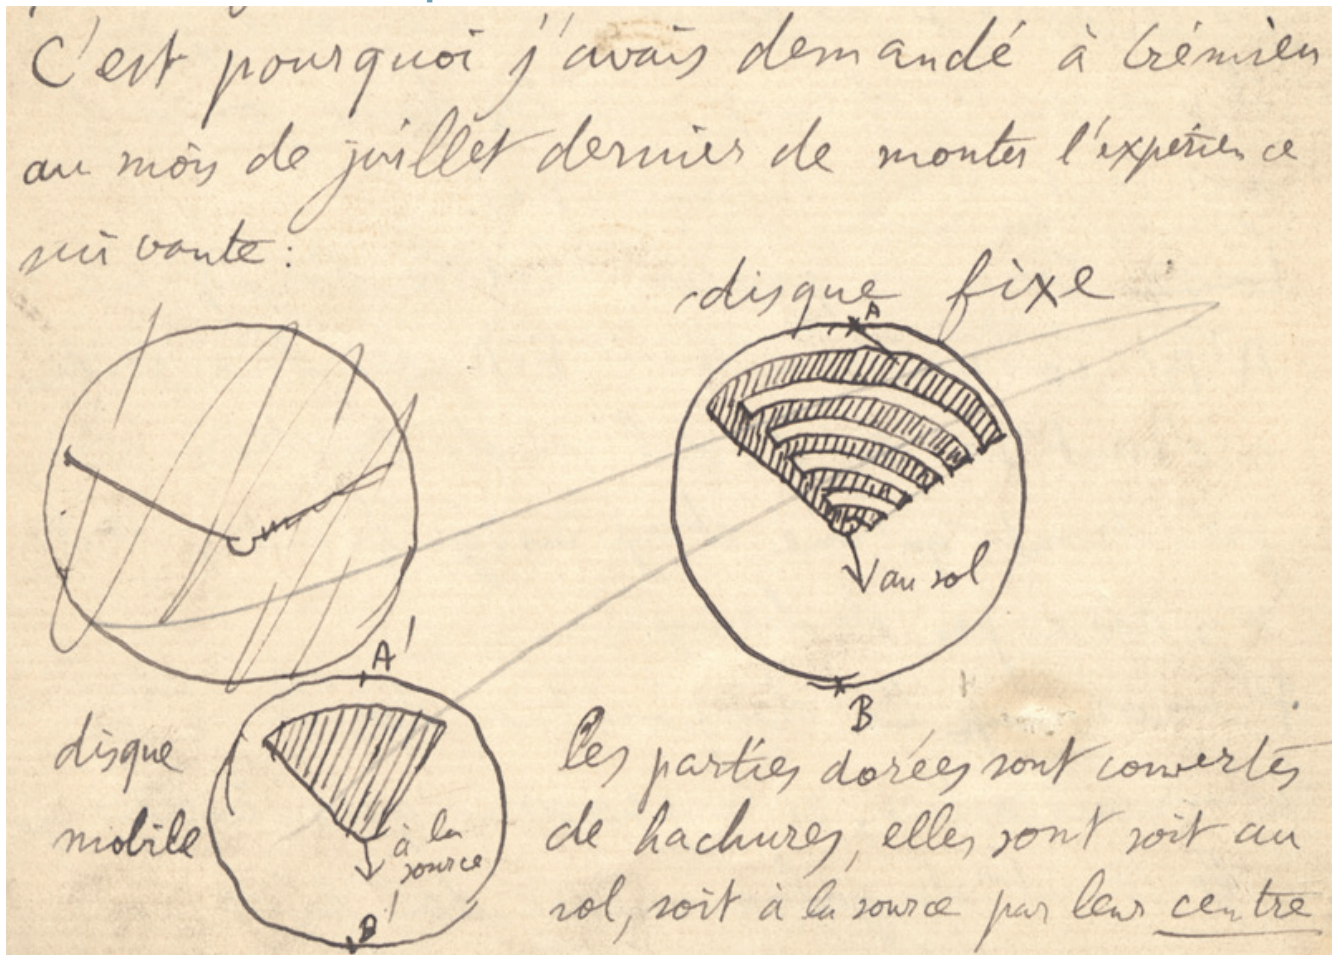 C'est pourquoi j'avais demandé à Crémieu
au mois de juillet dernier de monter l'expérience
suivante :
disque fixe
A
au sol
B
A'
disque
mobile
à la
source
B'
les parties dorées sont couvertes
de hachures, elles sont soit au
sol, soit à la source par leur centre